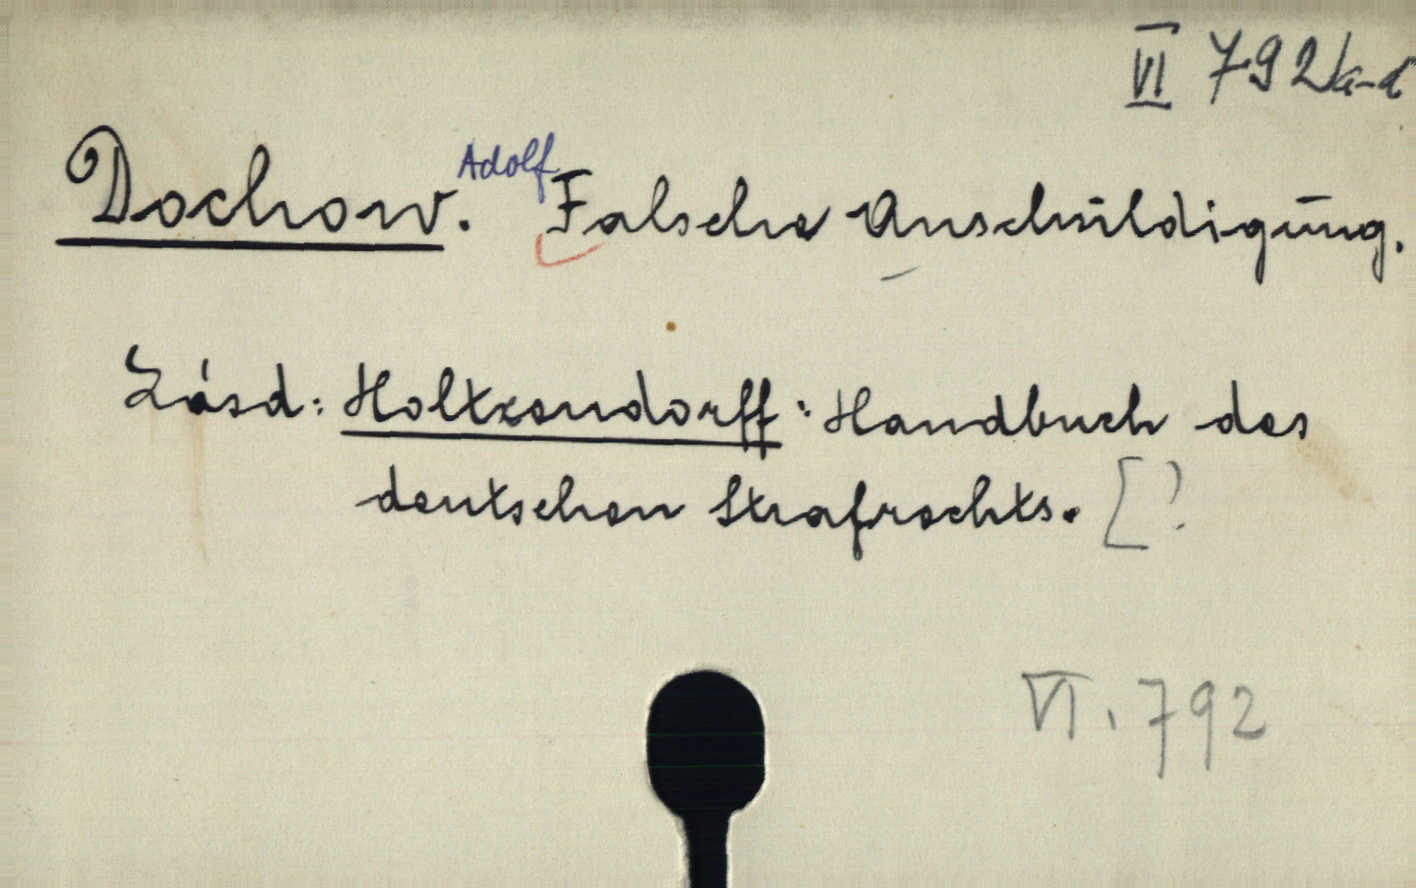 VI 792/a-d
Dochow. Adolf Falsche Anschuldigung.
Lásd: Holtzendorff: Handbuch des
deutschen Strafrechts. [?
VI. 792